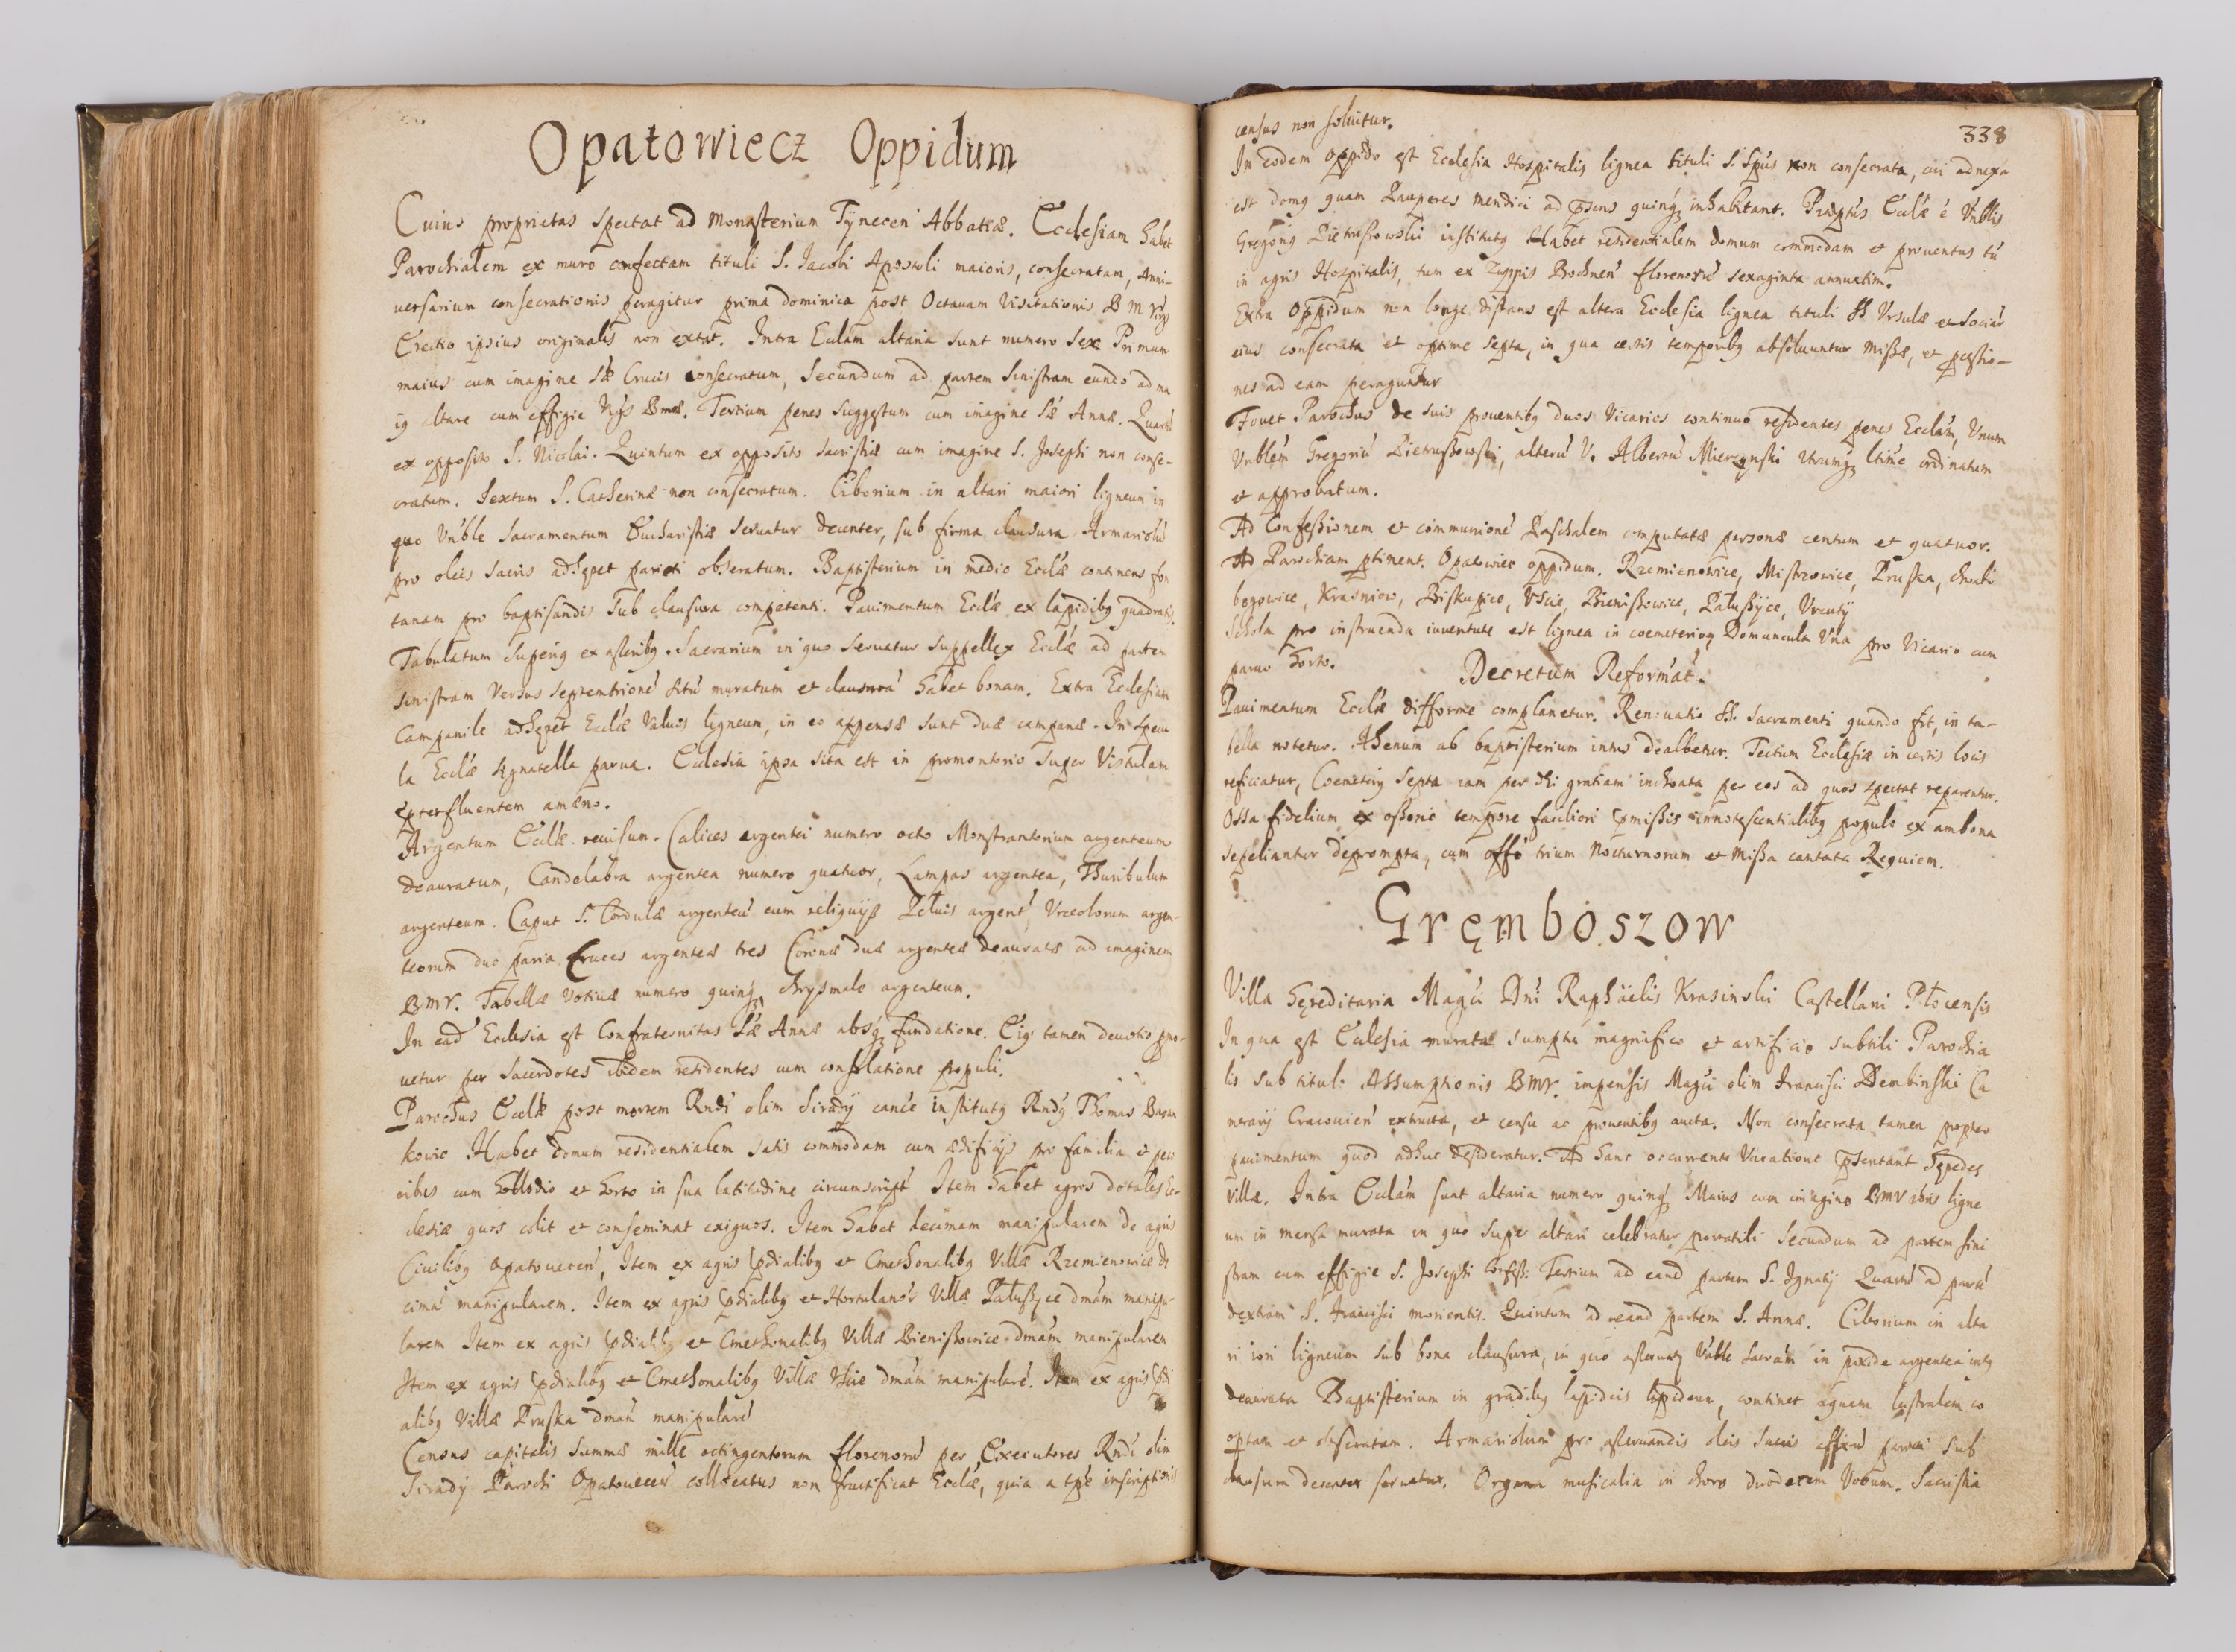 Opatowiecz Oppidum
Cuius proprietas spectat ad Monasterium Tynecen Abbatiæ. Ecclesiam habet
Parochialem ex muro confectam tituli S. Jacobi Apostoli maioris, consecratam, Anni-
uersarium consecrationis peragitur prima dominica post Octauam Visitationis B M Virgs
Erectio ipsius originalis non extat. Intra Eccläm altaria sunt numero sex Primum
maius cum imagine Sæ Crucis consecratum, Secundum ad partem sinistram eundo ad ma
ig altare cum effigie Vgs Bmæ. Tertium penes suggestum cum imagine Sæ Annæ. Quartū
ex opposito S. Nicolai. Quintum ex opposito sacristiæ cum imagine S. Josephi non conse-
cratum. Sextum S. Catherinæ non consecratum. Ciborium in altari maiori ligneum in
quo Vnble Sacramentum Eucharistiæ seruatur decenter, sub firma clausura Armariolū
pro oleis sacris adhęret parieti obseratum. Baptisterium in medio Ecclæ continens fon
tanam pro baptisandis sub clausura competenti. Pauimentum Ecclæ ex lapidibg quadratis.
Tabulatum superig ex asseribg. Sacrarium in quo seruatur suppellex Ecclæ ad partem
sinistram Versus septemtrionē sitū muratum et clausurā habet bonam. Extra Ecclesiam
Campanile adhęret Ecclæ Valuis ligneum, in eo appensæ sunt duæ campanæ. In specu
la Ecclæ signatella parua. Ecclesia ipsa sita est in promontorio super Vistulam
pterfluentem amæno.
Argentum Ecclæ reuisum. Calices argentei numero octo Monstrantorium argenteum
deauratum, Candelabra argentea numero quatuor, Lampas argentea, Thuribulum
argenteum. Caput S. Cordulæ argenteū cum reliquijs Peluis argent, Vrceolorum argen-
teorum duo paria Cruces argenteæ tres Coronæ duæ argenteæ deauratæ ad imaginem
BMV. Tabellæ votiuæ numero quinq, chrysmale argenteum.
In ead Ecclesia est Confraternitas Sæ Annæ absq fundatione. Eig tamen deuotio pmo-
uetur per Sacerdotes ibidem residentes cum consolatione populi.
Parochus Ecclæ post mortem Rndi olim Siradij cance institutg Rndg Thomas Baran
kowic Habet domum residentialem satis commodam cum ædificijs pro familia et peco
ribus cum et horto in sua latitudine circumscript Item habet agros dotales Ec-
clesiæ quos colit et conseminat exiguos. Item habet decimam manipularem de agris
Ciuilibg Opatouecen, Item ex agris pdialibg et Cmethonalibg Villæ Rzemienowice de
cimā manipularem. Item ex agris pdialibg et Hortulanor Villæ Pałuszyce dmam manipu-
larem Item ex agris pdialibg et Cmethonalibg Villæ Bieniszowice dmam manipularem
Item ex agris pdialibg et Cmethonalibg Villæ Vście dmam manipularē. Item ex agris pdi
alibg Villæ Pruska dmam manipularē
Census capitalis summæ mille octingentorum florenorū per Executores Rndi olim
Siradij Parochi Opatouecen collocatus non fructificat Ecclæ, quia a tpe inscriptionis
338
census non soluitur.
In eodem Oppido est Ecclesia Hospitalis lignea tituli S. Spūs non consecrata, cui adnexa
est domg quam Pauperes mendici ad psens quinq inhabitant. Præptūs Ecclæ ē Vnblis
Gregorig Pietraszowski institutg Habet residentialem domum commodam et prouentus tū
in agris Hospitalis, tum ex Zuppis Bochnen florenorū sexaginta annuatim.
Extra Oppidum non longe distans est altera Ecclesia lignea tituli SS Vrsulæ et sociar
eius consecrata et optime septa, in qua certis temporibg absoluuntur missæ, et pcessio-
nes ad eam peraguntur
Fouet Parochus de suis prouentibg duos Vicarios continuo residentes penes Eccläm, Vnum
Vnblem Gregoriū Pietraszowski, alterū V. Albertū Mierzynski Vtrumq ltime ordinatum
et approbatum.
Ad Confessionem et communionē Paschalem computatæ personæ centum et quatuor.
Ad Parochiam ptinent. Opatowiec oppidum. Rzemienowice, Mistrzowice, Pruska, Chwali
bogowice, Krasniow, Biskupice, Vście, Bieniszowice, Pałuszyce, Vrcuty
Schola pro instruenda iuuentute est lignea in coemeterio, Domuncula Vna pro Vicario cum
paruo horto.
Decretum Reformat.
Pauimentum Ecclæ difforme complanetur. Renouatio SS. Sacramenti quando fit, in ta-
bella notetur. Ahenum ab baptisterium intus dealbetur. Tectum Ecclesiæ in certis locis
reficiatur, Coemeterij septa iam per Di gratiam inchoata per eos ad quos spectat reparentur.
Ossa fidelium ex ossorio tempore faciliori pmissis innotescentialibg populo ex ambona
sepeliantur deprompta, cum offo trium Nocturnorum et Missa cantata Requiem.
Gręmboszow
Villa hęreditaria Magci Dni Raphäelis Krasinski Castellani Płocensis
In qua est Ecclesia murata sumptu magnifico et artificio subtili Parochia
lis sub titulo Assumptionis BMV. impensis Magci olim Francisci Dembinski Ca
merarij Cracouien extructa, et censu ac prouentibg aucta. Non consecrata tamen propter
pauimentum quod adhuc desideratur. Ad hanc occurrente Vacatione psentant hęredes
Villæ. Intra Eccläm sunt altaria numero quinq Maius cum imagine BMV ibus ligne
um in mensa murata in quo super altari celebratur portatili Secundum ad partem sini
stram cum effigie S. Josephi Confess: Tertium ad eand partem S. Ignatij Quartū ad partē
dextram S. Francisci morientis. Quintum ad eand partem S. Annæ. Ciborium in alta
ri iori ligneum sub bona clausura, in quo asseruatg Vnble Sacram in pixide argentea intg
deaurata Baptisterium in gradibg lapideis lapideum, continet aquam lustralem co
optam et obseratam. Armariolum pro asseruandis oleis sacris affixū parieti sub
clausura decenter seruatur. Organa musicalia in choro duodecem Vocum. Sacristia